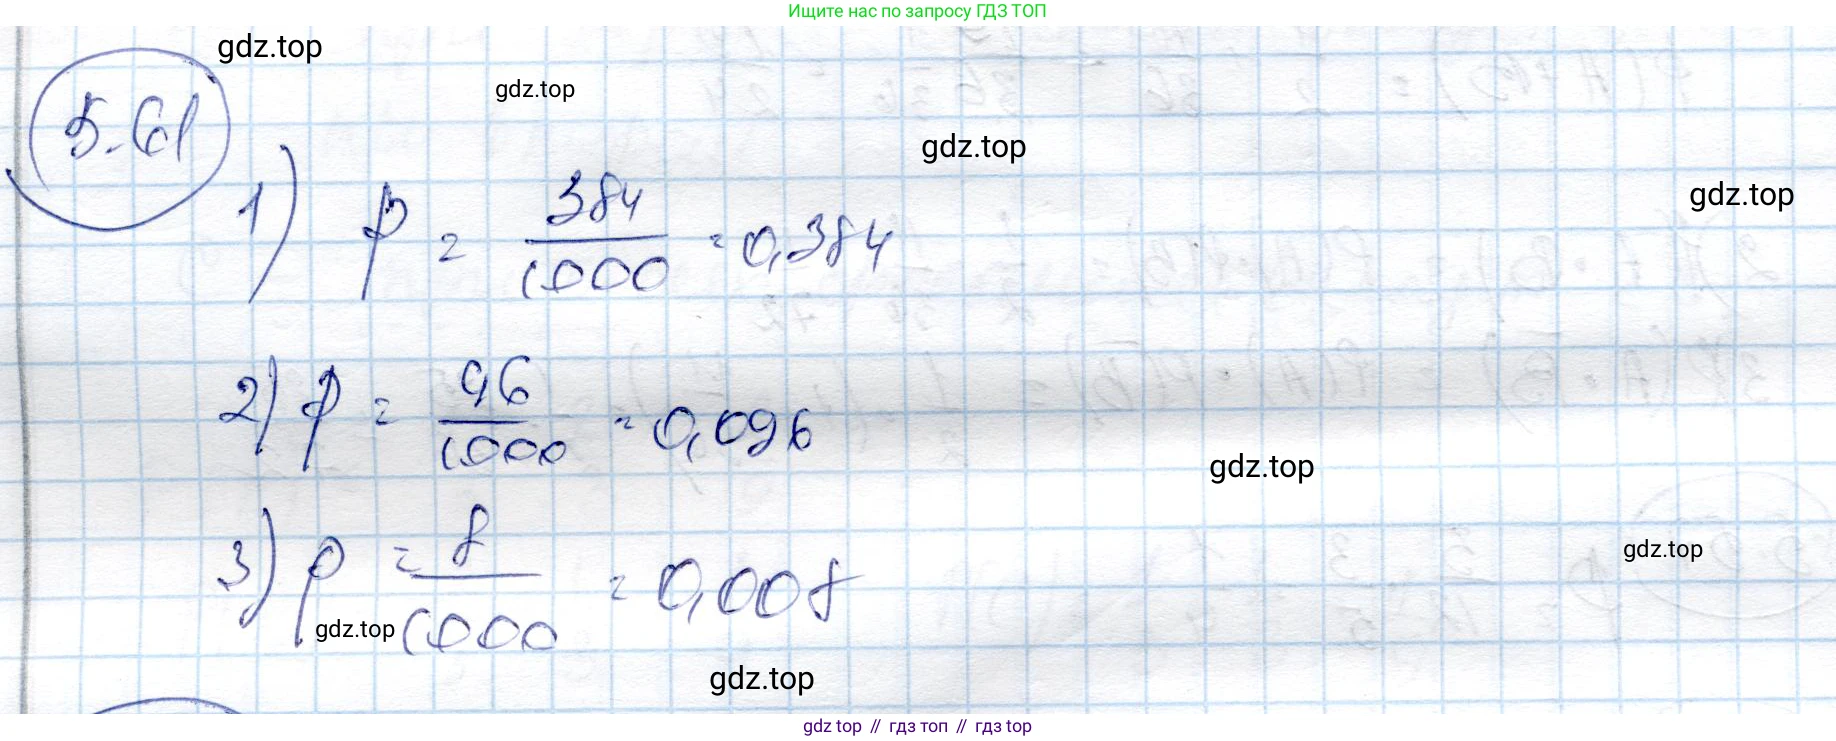 Ищите нас по запросу ГДЗ ТОП
gdz.top
gdz.top
5.61
gdz.top
gdz.top
1) p = 384/1000 = 0,384
2) p = 96/1000 = 0,096
gdz.top
3) p = 8/1000 = 0,008
gdz.top
gdz.top
gdz.top
gdz top // гдз топ // гдз top